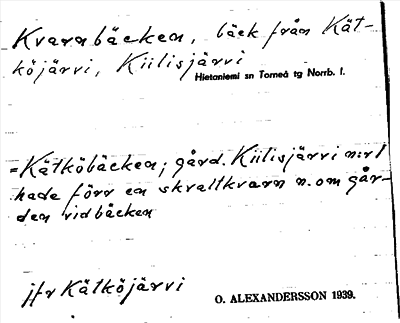 Kvarnbäcken, bäck från Kät-
köjärvi, Kiilisjärvi
Hietaniemi sn Torneå tg Norrb. l.
=Kätköbäcken; gård. Kiilisjärvi n:r 1
hade förr en skvaltkvarn n. om går-
den vid bäcken
jfr Kätköjärvi
O. ALEXANDERSSON 1939.